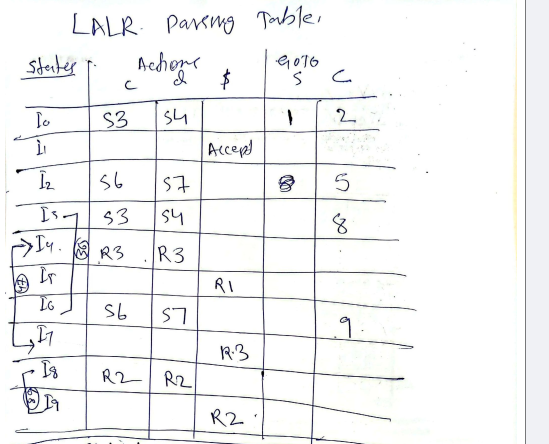 LALR. Parsing Table.
States Actions GOTO
c d $ S C
I0 S3 S4 1 2
I1 Accept
I2 S6 S7 5
I3 S3 S4 8
I4. 36 R3 R3
47 I5 R1
I6 S6 S7 9
I7 R3
I8 R2 R2
89 I9 R2